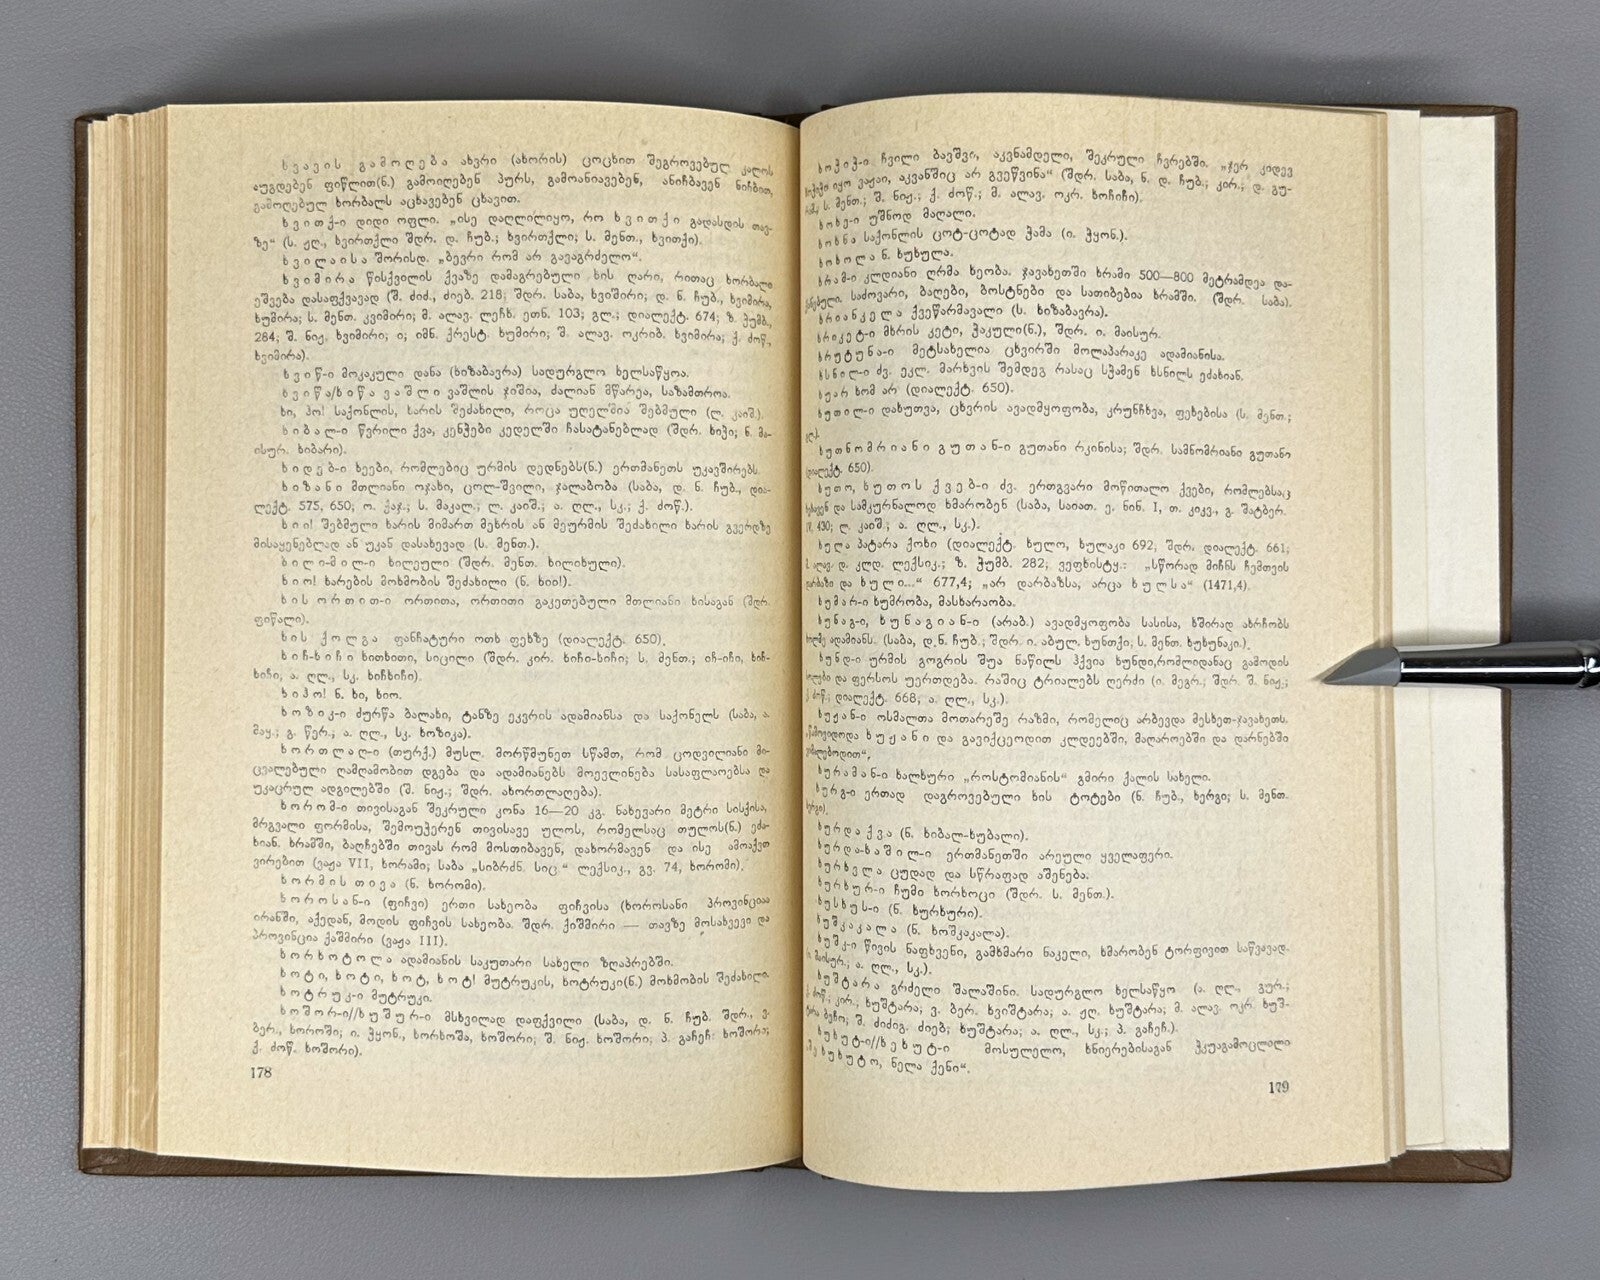 ხვავის გამოღება ახვრი (ახორის) ცოცხით შეგროვებულ კალოს
აუგდებენ ფიწლით(ნ.) გამოიღებენ პურს, გამოანიავებენ, ანიჩბავენ ნიჩბით,
გამოღებულ ხორბალს აცხავებენ ცხავით.
ხვითქ-ი დიდი ოფლი. „ისე დაღლილიყო, რო ხვითქი გადასდის თავ-
ზე“ (ს. ჟღ., ხვირთქლი შდრ. დ. ჩუბ.; ხვირთქლი; ს. მენთ., ხვითქი).
ხვილაისა შორისდ. „ბევრი რომ არ გავაგრძელო“.
ხვიმირა წისქვილის ქვაზე დამაგრებული ხის ღარი, რითაც ხორბალი
ეშვება დასაფქვავად (შ. ძიძ., ძიებ. 218; შდრ. საბა, ხვიშირი; დ. ნ. ჩუბ., ხვიმირა,
ხუმირა; ს. მენთ. კვიმირი; მ. ალავ. ლეჩხ. ეთნ. 103; გლ.; დიალექტ. 674; ზ. ჭუმბ.,
284; შ. ნიჟ. ხვიმირი; ი; იმნ. ქრესტ. ხუმირი; შ. ალავ. ოკრიბ. ხვიმირა; ქ. ძოწ.,
ხვიმირა).
ხვიწ-ი მოკაკული დანა (ხიზაბავრა) სადურგლო ხელსაწყოა.
ხვიწა/ხიწა ვაშლი ვაშლის ჯიშია, ძალიან მწარეა, საზამთროა.
ხი, ჰო! საქონლის, ხარის შეძახილი, როცა უღელშია შებმული (ლ. კაიშ.).
ხიბალ-ი წვრილი ქვა, კენჭები კედელში ჩასატანებლად (შდრ. ხიჭი; ნ. მა-
ისურ. ხიბარი).
ხიდებ-ი ხეები, რომლებიც ურმის დედნებს(ნ.) ერთმანეთს უკავშირებს.
ხიზანი მთლიანი ოჯახი, ცოლ-შვილი, ჯალაბობა (საბა, დ. ნ. ჩუბ., დია-
ლექტ. 575, 650; ო. ქაჯ.; ს. მაკალ.; ლ. კაიშ.; ა. ღლ., სკ.; ქ. ძოწ.).
ხიი! შებმული ხარის მიმართ მეხრის ან მეურმის შეძახილი ხარის გვერდზე
მისაყენებლად ან უკან დასახევად (ს. მენთ.).
ხილი-მილ-ი ხილეული (შდრ. მენთ. ხილიხული).
ხიო! ხარების მოხმობის შეძახილი (ნ. ხიი!).
ხის ორთით-ი ორთითა, ორთითი გაკეთებული მთლიანი ხისაგან (შდრ.
ფიწალი).
ხის ქოლგა ფანჩატური ოთხ ფეხზე (დიალექტ. 650).
ხიჩ-ხიჩი ხითხითი, სიცილი (შდრ. კირ. ხიჩი-ხიჩი; ს. მენთ.; იჩ-იჩი, ხიჩ-
ხიჩი; ა. ღლ., სკ. ხიჩხიჩი).
ხიჰო! ნ. ხი, ხიო.
ხოზიკ-ი ძურწა ბალახი, ტანზე ეკვრის ადამიანსა და საქონელს (საბა, ა.
მაყ.; გ. წერ.; ა. ღლ., სკ. ხოზიკა).
ხორთლაღ-ი (თურქ.) მუსლ. მორწმუნეთ სწამთ, რომ ცოდვილიანი მი-
ცვალებული ღამღამობით დგება და ადამიანებს მოევლინება სასაფლაოებსა და
უკაცრულ ადგილებში (შ. ნიჟ.; შდრ. ახორთლაღება).
ხორომ-ი თივისაგან შეკრული კონა 16—20 კგ. ნახევარი მეტრი სისქისა,
მრგვალი ფორმისა, შემოუჭერენ თივისავე ულოს, რომელსაც თულოს(ნ.) ეძა-
ხიან. ხრამში, ბაღჩებში თივას რომ მოსთიბავენ, დახორმავენ და ისე ამოაქვთ
ვირებით (ვაჟა VII, ხორამი; საბა „სიბრძნ. სიც.“ ლექსიკ., გვ. 74, ხორომი).
ხორმის თივა (ნ. ხორომი).
ხოროსან-ი (ფიჩვი) ერთი სახეობა ფიჩვისა (ხოროსანი პროვინციაა
ირანში, აქედან, მოდის ფიჩვის სახეობა. შდრ. ქიშმირი — თავზე მოსახვევი და
პროვინცია ქაშმირი (ვაჟა III).
ხორხოტოლა ადამიანის საკუთარი სახელი ზღაპრებში.
ხოტი, ხოტი, ხოტ, ხოტ! მუტრუკის, ხოტრუკი(ნ.) მოხმობის შეძახილი.
ხოტრუკ-ი მუტრუკი.
ხოშორ-ი//ხუშურ-ი მსხვილად დაფქვილი (საბა, დ. ნ. ჩუბ. შდრ., ვ.
ბერ., ხოროში; ი. ჭყონ., ხორხოშა, ხოშორი; შ. ნიჟ. ხოშორი; პ. გაჩეჩ. ხოშორა;
ქ. ძოწ. ხოშორი).
178
ხოჭიჭ-ი ჩვილი ბავშვი, აკვნამდელი, შეკრული ჩვრებში. „ჯერ კიდევ
ხოჭიჭი იყო ვაჟაი, აკვანშიც არ გვეწვინა“ (შდრ. საბა, ნ. დ. ჩუბ.; კირ.; დ. გუ-
რამ., ს. მენთ.; შ. ნიჟ.; ქ. ძოწ.; მ. ალავ. ოკრ. ხოჩიჩი).
ხოხე-ი უშნოდ მაღალი.
ხოხნა საქონლის ცოტ-ცოტად ჭამა (ი. ჭყონ.).
ხოხოლა ნ. ხუხულა.
ხრამ-ი კლდიანი ღრმა ხეობა. ჯავახეთში ხრამი 500—800 მეტრამდეა და-
ქანებული. საძოვარი, ბაღები, ბოსტნები და სათიბებია ხრამში. (შდრ. საბა).
ხრიანკელა ქვეწარმავალი (ს. ხიზაბავრა).
ხრიკეტ-ი მხრის კეტი, ჭაკული(ნ.), შდრ. ი. მაისურ.
ხრუტუნა-ი მეტსახელია ცხვირში მოლაპარაკე ადამიანისა.
ხსნილ-ი ძვ. ეკლ. მარხვის შემდეგ რასაც სჭამენ ხსნილს ეძახიან.
ხუარ ხომ არ (დიალექტ. 650).
ხუთილ-ი დახუთვა, ცხვრის ავადმყოფობა, კრუნჩხვა, ფეხებისა (ს. მენთ.;
გლ.).
ხუთნომრიანი გუთან-ი გუთანი რკინისა; შდრ. სამნომრიანი გუთანი
(დიალექტ. 650).
ხუთო, ხუთოს ქვებ-ი ძვ. ერთგვარი მოწითალო ქვები, რომლებსაც
ხეხავენ და სამკურნალოდ ხმარობენ (საბა, საიათ. ე. ნინ. I, თ. კიკვ., გ. შატბერ.
IV. 430; ლ. კაიშ.; ა. ღლ., სკ.).
ხულა პატარა ქოხი (დიალექტ. ხულო, ხულაკი 692; შდრ. დიალექტ. 661;
მ. ალავ. დ. კლდ. ლექსიკ.; ზ. ჭუმბ. 282, ვეფხისტყ.: „სწორად მიჩნს ჩემთვის
დარბაზი და ხული...“ 677,4; „არ დარბაზსა, არცა ხულსა“ (1471,4).
ხუმარ-ი ხუმრობა, მასხარაობა.
ხუნაგ-ი, ხუნაგიან-ი (არაბ.) ავადმყოფობა სასისა, ხშირად ახრჩობს
ხოლმე ადამიანს. (საბა, დ.ნ. ჩუბ.; შდრ. ი. აბულ. ხუნთქი; ს. მენთ. ხუხუნაკი.).
ხუნდ-ი ურმის გოგრის შუა ნაწილს ჰქვია ხუნდი,რომლიდანაც გამოდის
სოლები და ფერსოს უერთდება. რაშიც ტრიალებს ღერძი (ი. მეგრ.; შდრ. შ. ნიჟ.;
ქ. ძოწ.; დიალექტ. 668; ა. ღლ., სკ.).
ხუჟან-ი ოსმალთა მოთარეშე რაზმი, რომელიც არბევდა მესხეთ-ჯავახეთს.
„წამოვიდოდა ხუჟანი და გავიქცეოდით კლდეებში, მაღაროებში და დარნებში
ვიმალებოდით“.
ხურამან-ი ხალხური „როსტომიანის“ გმირი ქალის სახელი.
ხურგ-ი ერთად დაგროვებული ხის ტოტები (ნ. ჩუბ., ხერგი; ს. მენთ.
ხერგი).
ხურდა ქვა (ნ. ხიბალ-ხუბალი).
ხურდა-ხაშილ-ი ერთმანეთში არეული ყველაფერი.
ხურხელა ცუდად და სწრაფად აშენება.
ხურხურ-ი ჩუმი ხორხოცი (შდრ. ს. მენთ.).
ხუსხუს-ი (ნ. ხურხური).
ხუშკაკალა (ნ. ხოშკაკალა).
ხუშკ-ი წივის ნაფხვენი, გამხმარი ნაკელი, ხმარობენ ტორფივით საწვავად.
ი. მაისურ.; ა. ღლ., სკ.).
ხუშტარა გრძელი შალაშინი. სადურგლო ხელსაწყო (ა. ღლ., გურ.;
ქ. ძოწ.; კირ., ხუშტარა; ვ. ბერ. ხვიშტარა; ა. ჟღ. ხუშტარა; მ. ალავ. ოკრ. ხუშ-
ტრა ბეჩო; შ. ძიძიგ. ძიებ; ხუშტარა; ა. ღლ., სკ.; პ. გაჩეჩ.).
ხუხუტ-ი//ხეხუტ-ი მოსულელო, ხნიერებისაგან ჭკუაგამოცლილი
„შე ხუხუტო, ნელა ქენი“.
179